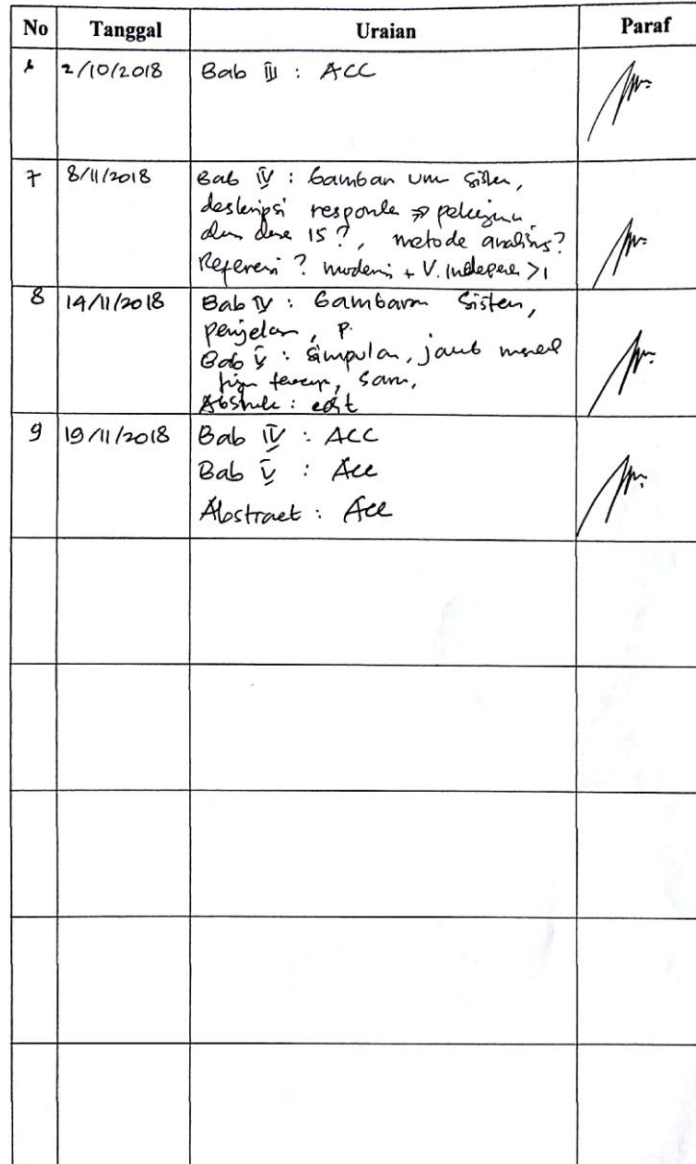 No Tanggal Uraian Paraf
2/10/2018 Bab III : ACC
7 8/11/2018 Bab IV : Gambaran um sistem,
deskripsi responde
15 ?, metode analisis?
Referensi ? + V. independen >1
8 14/11/2018 Bab IV : Gambaran Sistem,
penjelasan, P.
Bab V : Simpulan, jawab
Saran,
Abstrak : edit
9 19/11/2018 Bab IV : ACC
Bab V : Acc
Abstract : Acc